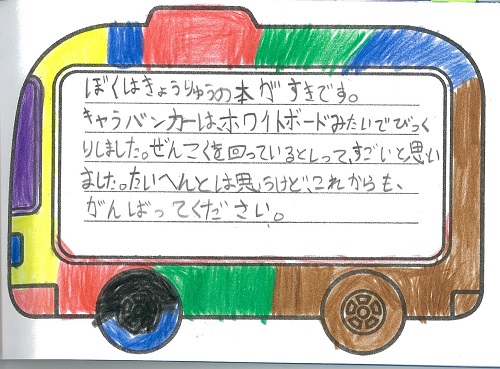 ぼくはきょうりゅうの本がすきです。
キャラバンカーは、ホワイトボードみたいでびっく
りしました。ぜんこくを回っているとしって、すごいと思い
ました。たいへんとは思うけど、これからも、
がんばってください。